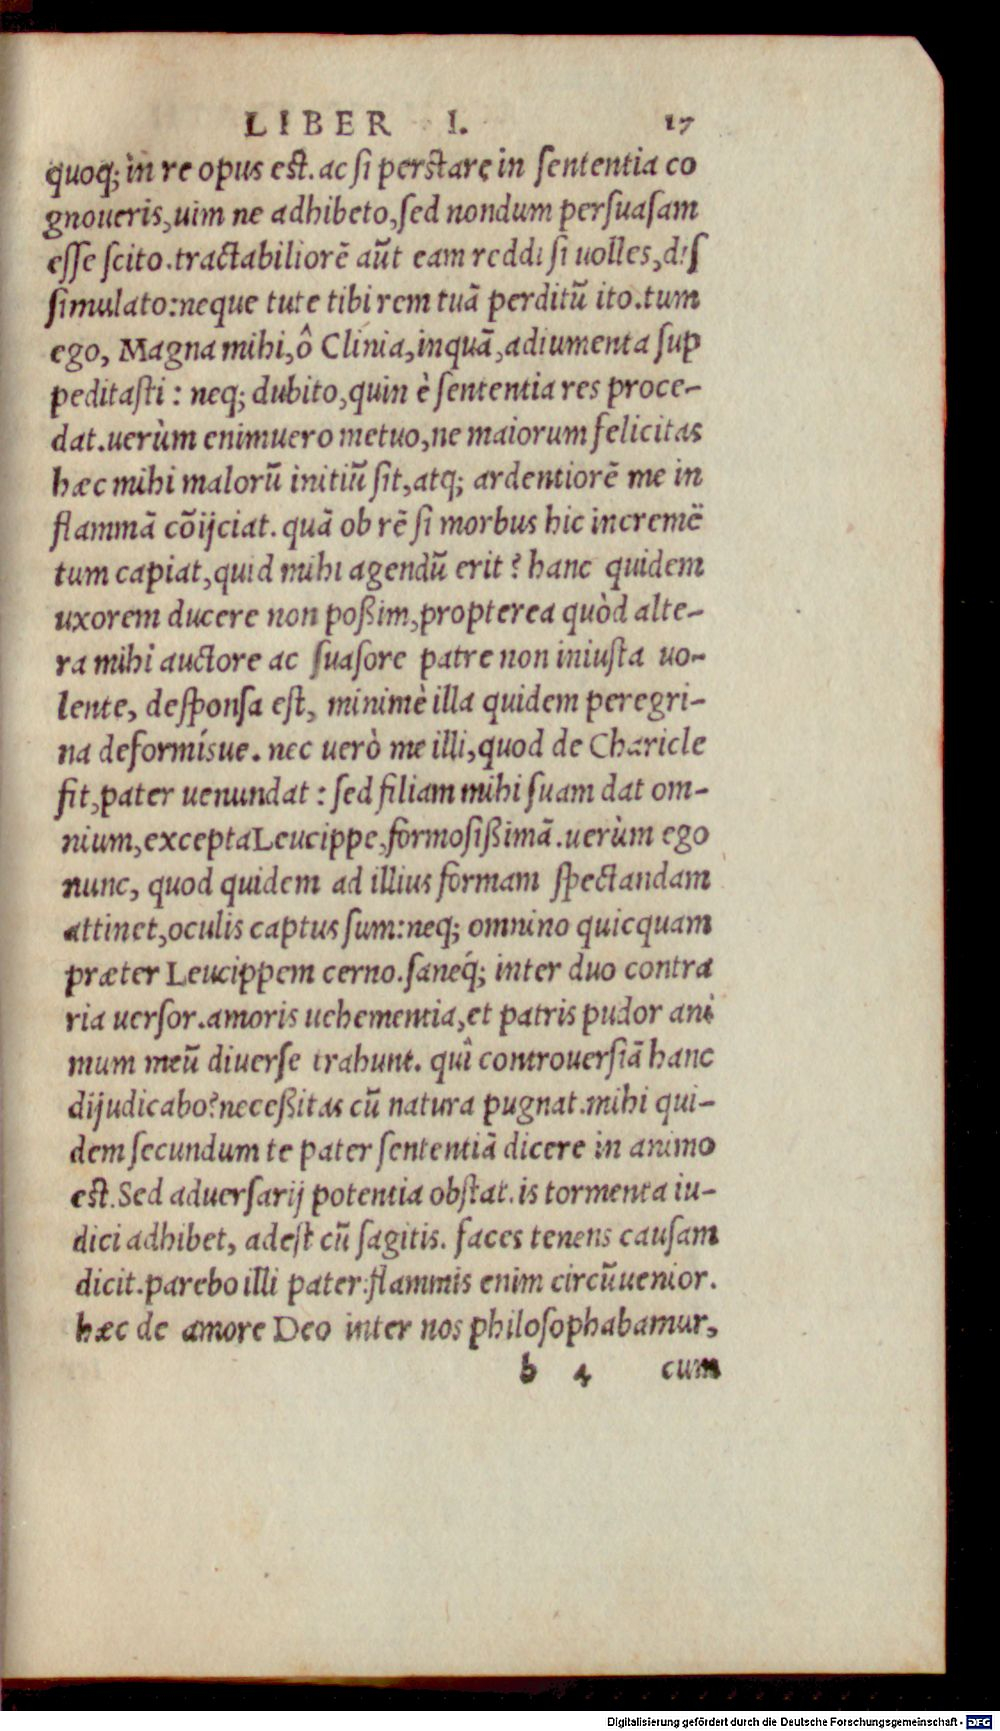 LIBER I. 17
quoq; in re opus est. ac si perstare in sententia co
gnoueris, uim ne adhibeto, sed nondum persuasam
esse scito. tractabiliorē aūt eam reddi si uolles, dis
simulato: neque tute tibi rem tuā perditū ito. tum
ego, Magna mihi, ô Clinia, inquā, adiumenta sup
peditasti: neq; dubito, quin è sententia res proce-
dat. uerùm enimuero metuo, ne maiorum felicitas
hæc mihi malorū initiū sit, atq; ardentiorē me in
flammā cōijciat. quā ob rē si morbus hic incremē
tum capiat, quid mihi agendū erit? hanc quidem
uxorem ducere non poßim, propterea quòd alte-
ra mihi auctore ac suasore patre non iniusta uo-
lente, desponsa est, minimè illa quidem peregri-
na deformísue. nec uerò me illi, quod de Charicle
fit, pater uenundat: sed filiam mihi suam dat om-
nium, excepta Leucippe, formosißimā. uerùm ego
nunc, quod quidem ad illius formam spectandam
attinet, oculis captus sum: neq; omnino quicquam
præter Leucippem cerno. saneq́; inter duo contra
ria uersor. amoris uehementia, et patris pudor ani
mum meū diuerse trahunt. quî controuersiā hanc
dijudicabo? neceßitas cū natura pugnat. mihi qui-
dem secundum te pater sententiā dicere in animo
est. Sed aduersarij potentia obstat. is tormenta iu-
dici adhibet, adest cū sagitis. faces tenens causam
dicit. parebo illi pater: flammis enim circūuenior.
hæc de amore Deo inter nos philosophabamur,
b 4 cum
Digitalisierung gefördert durch die Deutsche Forschungsgemeinschaft - DFG